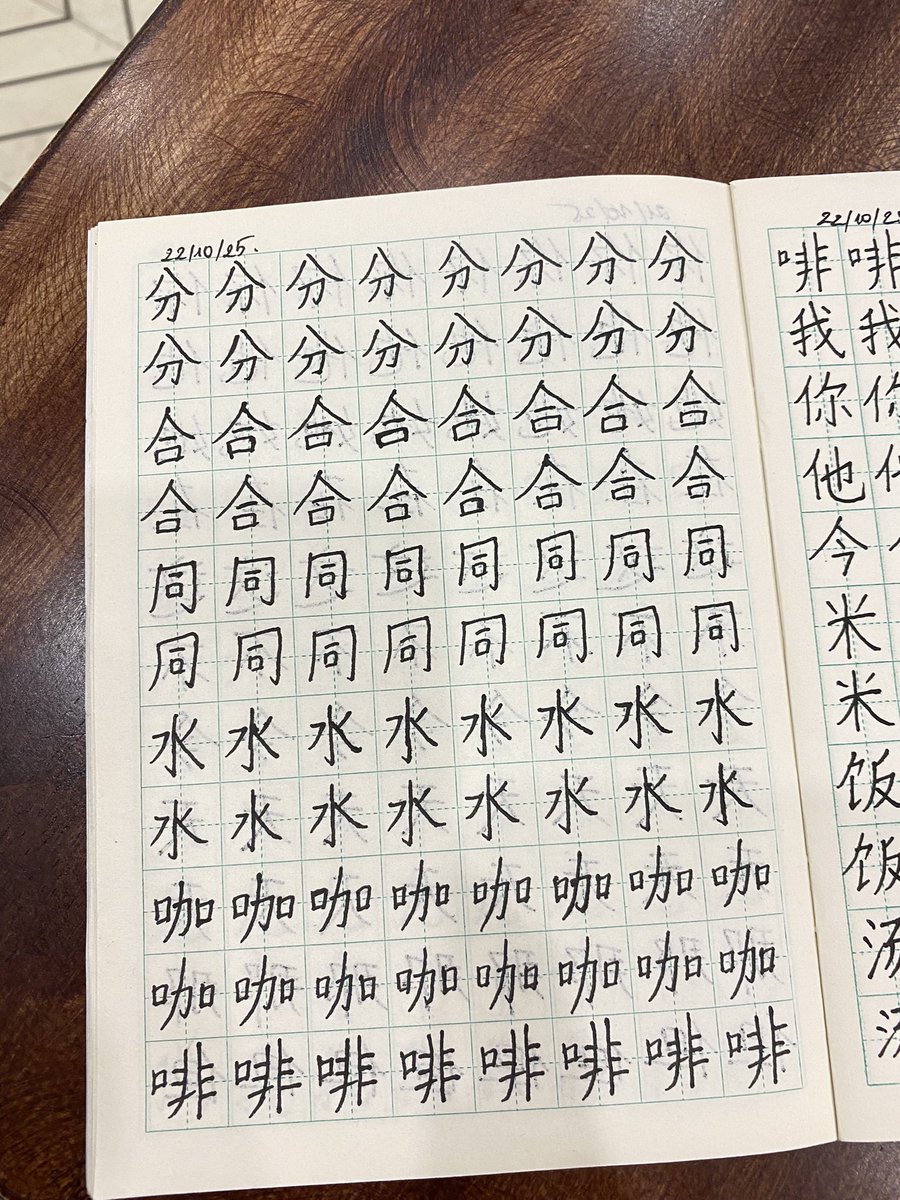 22/10/25.
分 分 分 分 分 分 分 分
分 分 分 分 分 分 分 分
合 合 合 合 合 合 合 合
合 合 合 合 合 合 合 合
同 同 同 同 同 同 同 同
同 同 同 同 同 同 同 同
水 水 水 水 水 水 水 水
水 水 水 水 水 水 水 水
咖 咖 咖 咖 咖 咖 咖 咖
咖 咖 咖 咖 咖 咖 咖 咖
啡 啡 啡 啡 啡 啡 啡 啡
22/10/25
啡 啡
我 我
你 你
他 他
今
米
米
饭
饭
汤